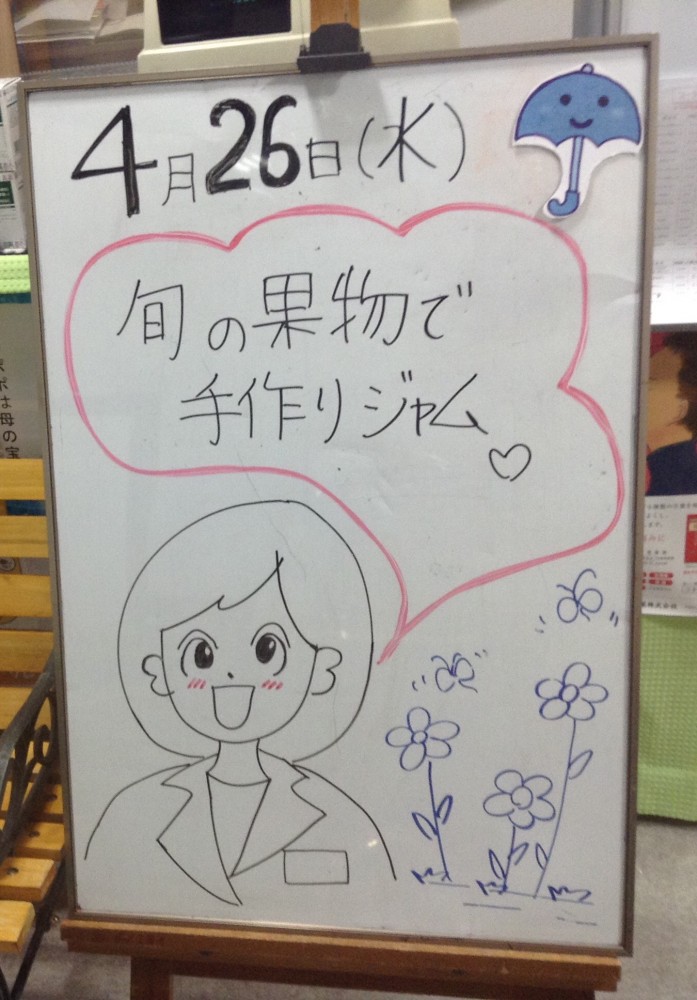 4月26日(水)
旬の果物で
手作りジャム♡